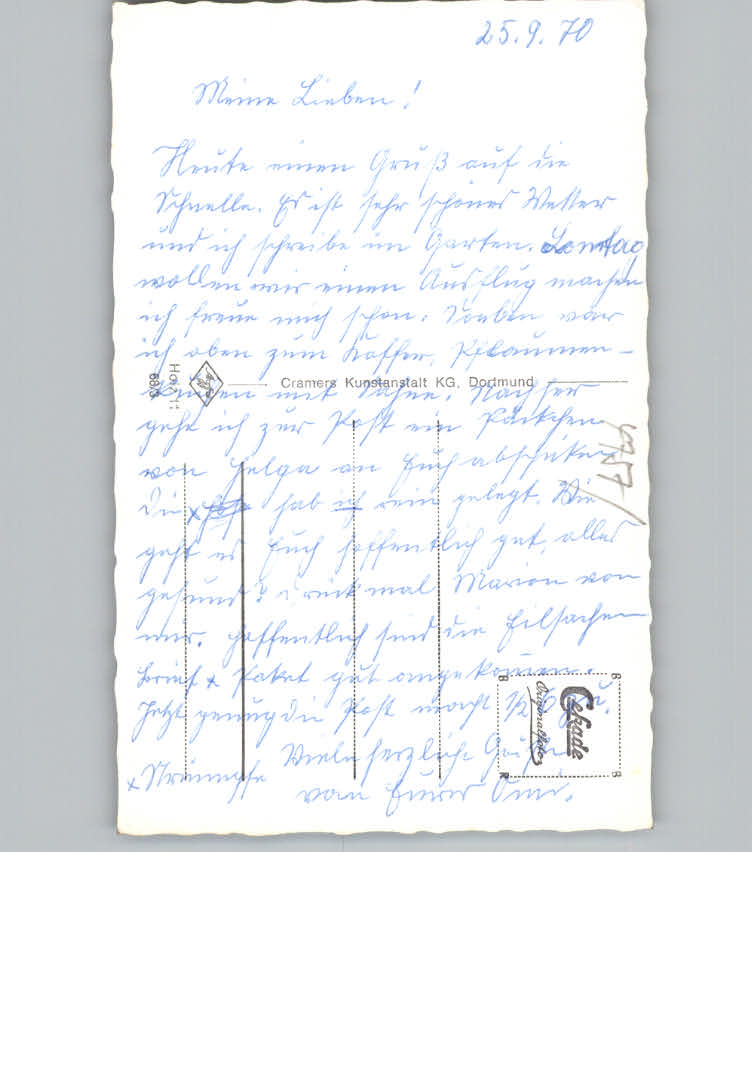 25.9.70
Meine Lieben!
Heute einen Gruß auf die
Schnelle. Es ist sehr schönes Wetter
und ich schreibe im Garten. Sonntag
wollen wir einen Ausflug machen
ich freue mich schon. Soeben war
ich oben zum Kaffee, Pflaumen-
kuchen mit Sahne. Nachher
gehe ich zur Post ein Päckchen
von Helga an Euch abschicken
Die x hab ich rein gelegt. Wie
geht es Euch hoffentlich gut, alles
gesund? Drück mal Marion von
mir. Hoffentlich sind die Eilsachen
Brief + Paket gut angekommen.
Jetzt genug die Post macht 1/2 6 zu.
Viele herzliche Grüße
x Strümpfe
von Eurer Omi.
Cramers Kunstanstalt KG, Dortmund
Agfa
4757/
Cekade
Originalfoto
B
B
B
R